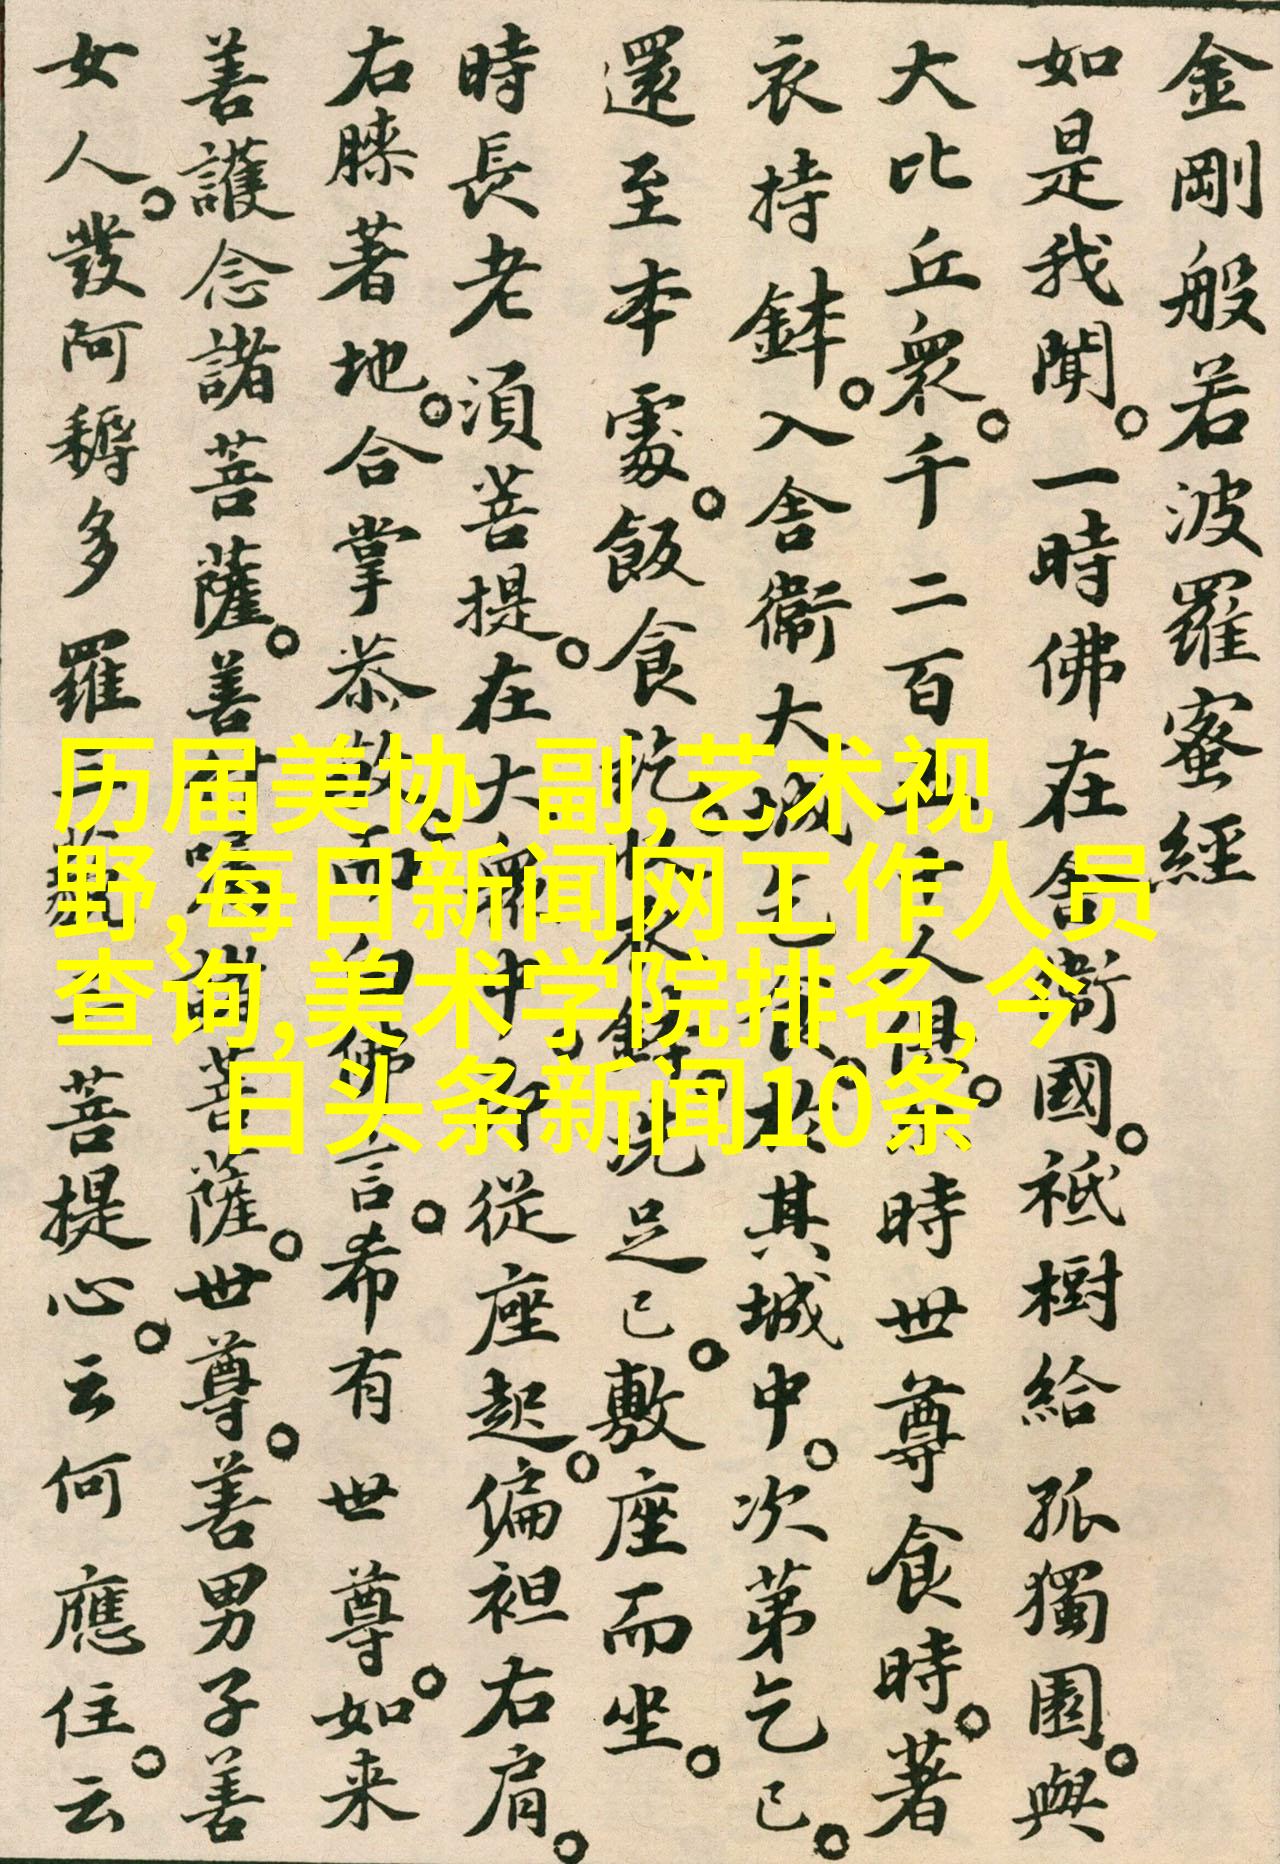 金剛般若波羅蜜經
如是我聞。一時佛在舍衞國。祇樹給孤獨園。與
大比丘衆。千二百五十人俱。爾時世尊食時。著
衣持鉢。入舍衞大城乞食。於其城中。次第乞已。
還至本處。飯食訖。收衣鉢。洗足已。敷座而坐。
時長老須菩提。在大衆中。即從座起。偏袒右肩。
右膝著地。合掌恭敬。而白佛言。希有世尊。如来
善護念諸菩薩。善付囑諸菩薩。世尊。善男子善
女人。發阿耨多羅三藐三菩提心。云何應住。云
历届美协 副,艺术视
野,每日新闻网工作人员
查询,美术学院排名,今
日头条新闻10条